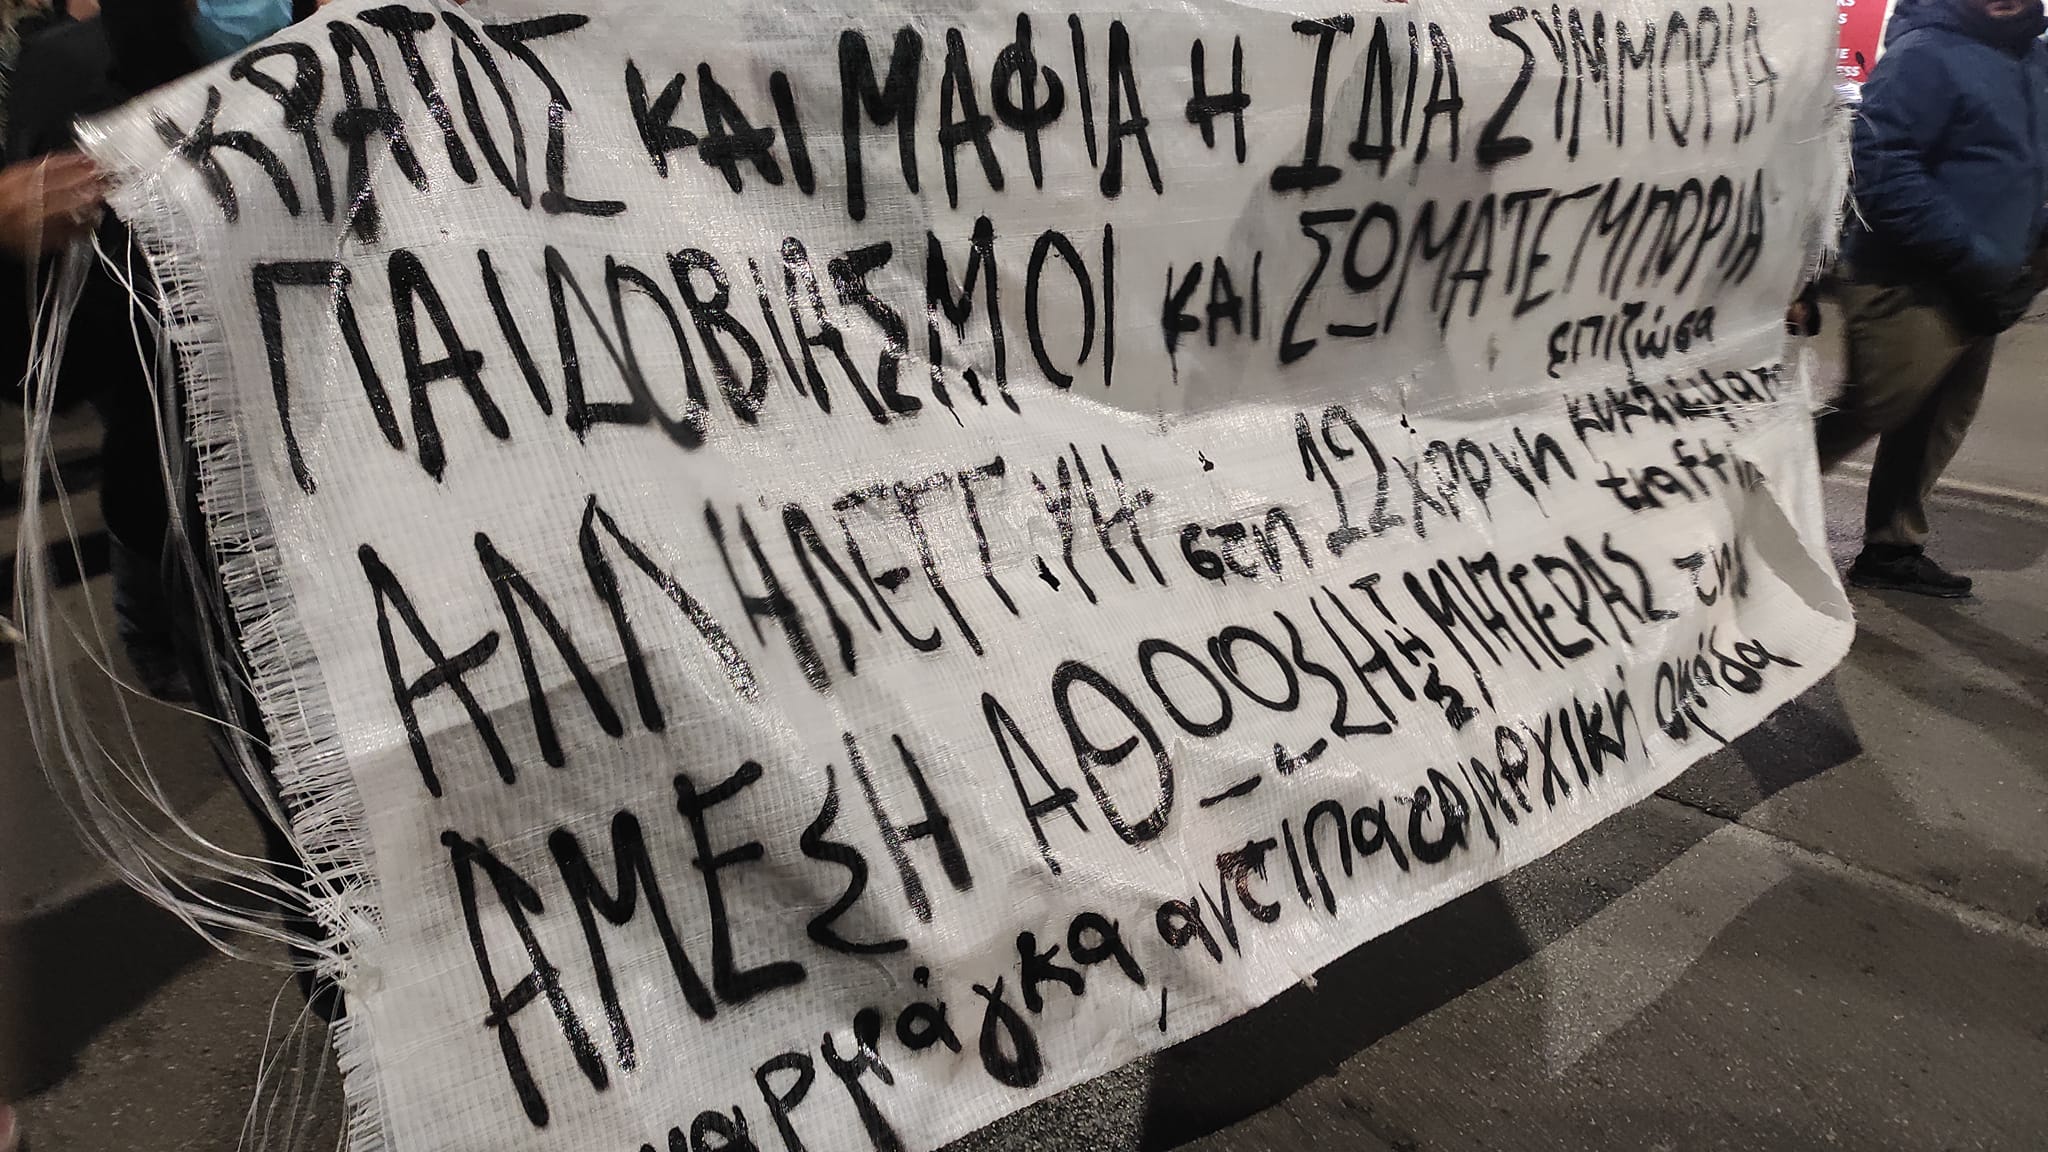 ΚΡΑΤΟΣ ΚΑΙ ΜΑΦΙΑ Η ΙΔΙΑ ΣΥΜΜΟΡΙΑ
ΠΑΙΔΟΒΙΑΣΜΟΙ ΚΑΙ ΣΩΜΑΤΕΜΠΟΡΙΑ
ΑΛΛΗΛΕΓΓΥΗ στη 12χρονη επιζώσα
κυκλώματ
traffi
ΑΜΕΣΗ ΑΘΩΩΣΗ ΤΗΣ ΜΗΤΕΡΑΣ της
μαρμάγκα, αντιπατριαρχική ομάδα
ESS